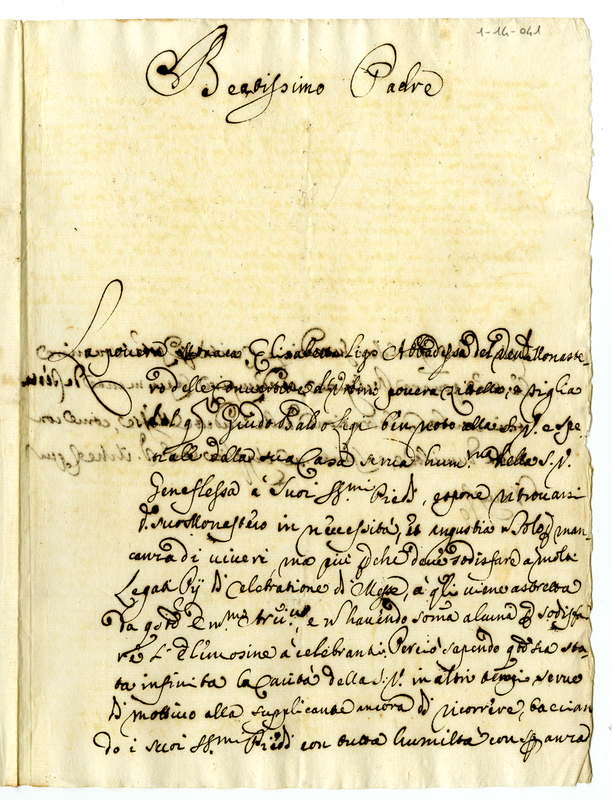 1-14-041
Beatissimo Padre
La povera Monaca Elisabetta Ligi Abbadessa del Ven. Monaste-
ro delle Convertite d'Urbino povera Zitella, e figlia
del q. Guido Baldo Ligi ben noto alla S.V. e spe-
tiale della sua Casa serva hum.ma della S.V.
Genuflessa a' suoi SS.mi Piedi, espone ritrovarsi
d. suo Monastero in necessità, et angustia n solo p man-
canza di viveri, ma più p che deve sodisfare a molti
Legati Pij di Celebratione di Messe, a' q.li viene astretta
da q.to E.mo, e n havendo soma alcuna p sodisfa-
re l' elimosine a' celebranti. Perciò sapendo q.to sia sta-
ta infinita la Carità della S.V. in altri tempi serve
di mottivo alla supplicante ancora di ricorrere, baccian
do i suoi SS.mi Piedi con tutta humiltà con speranza